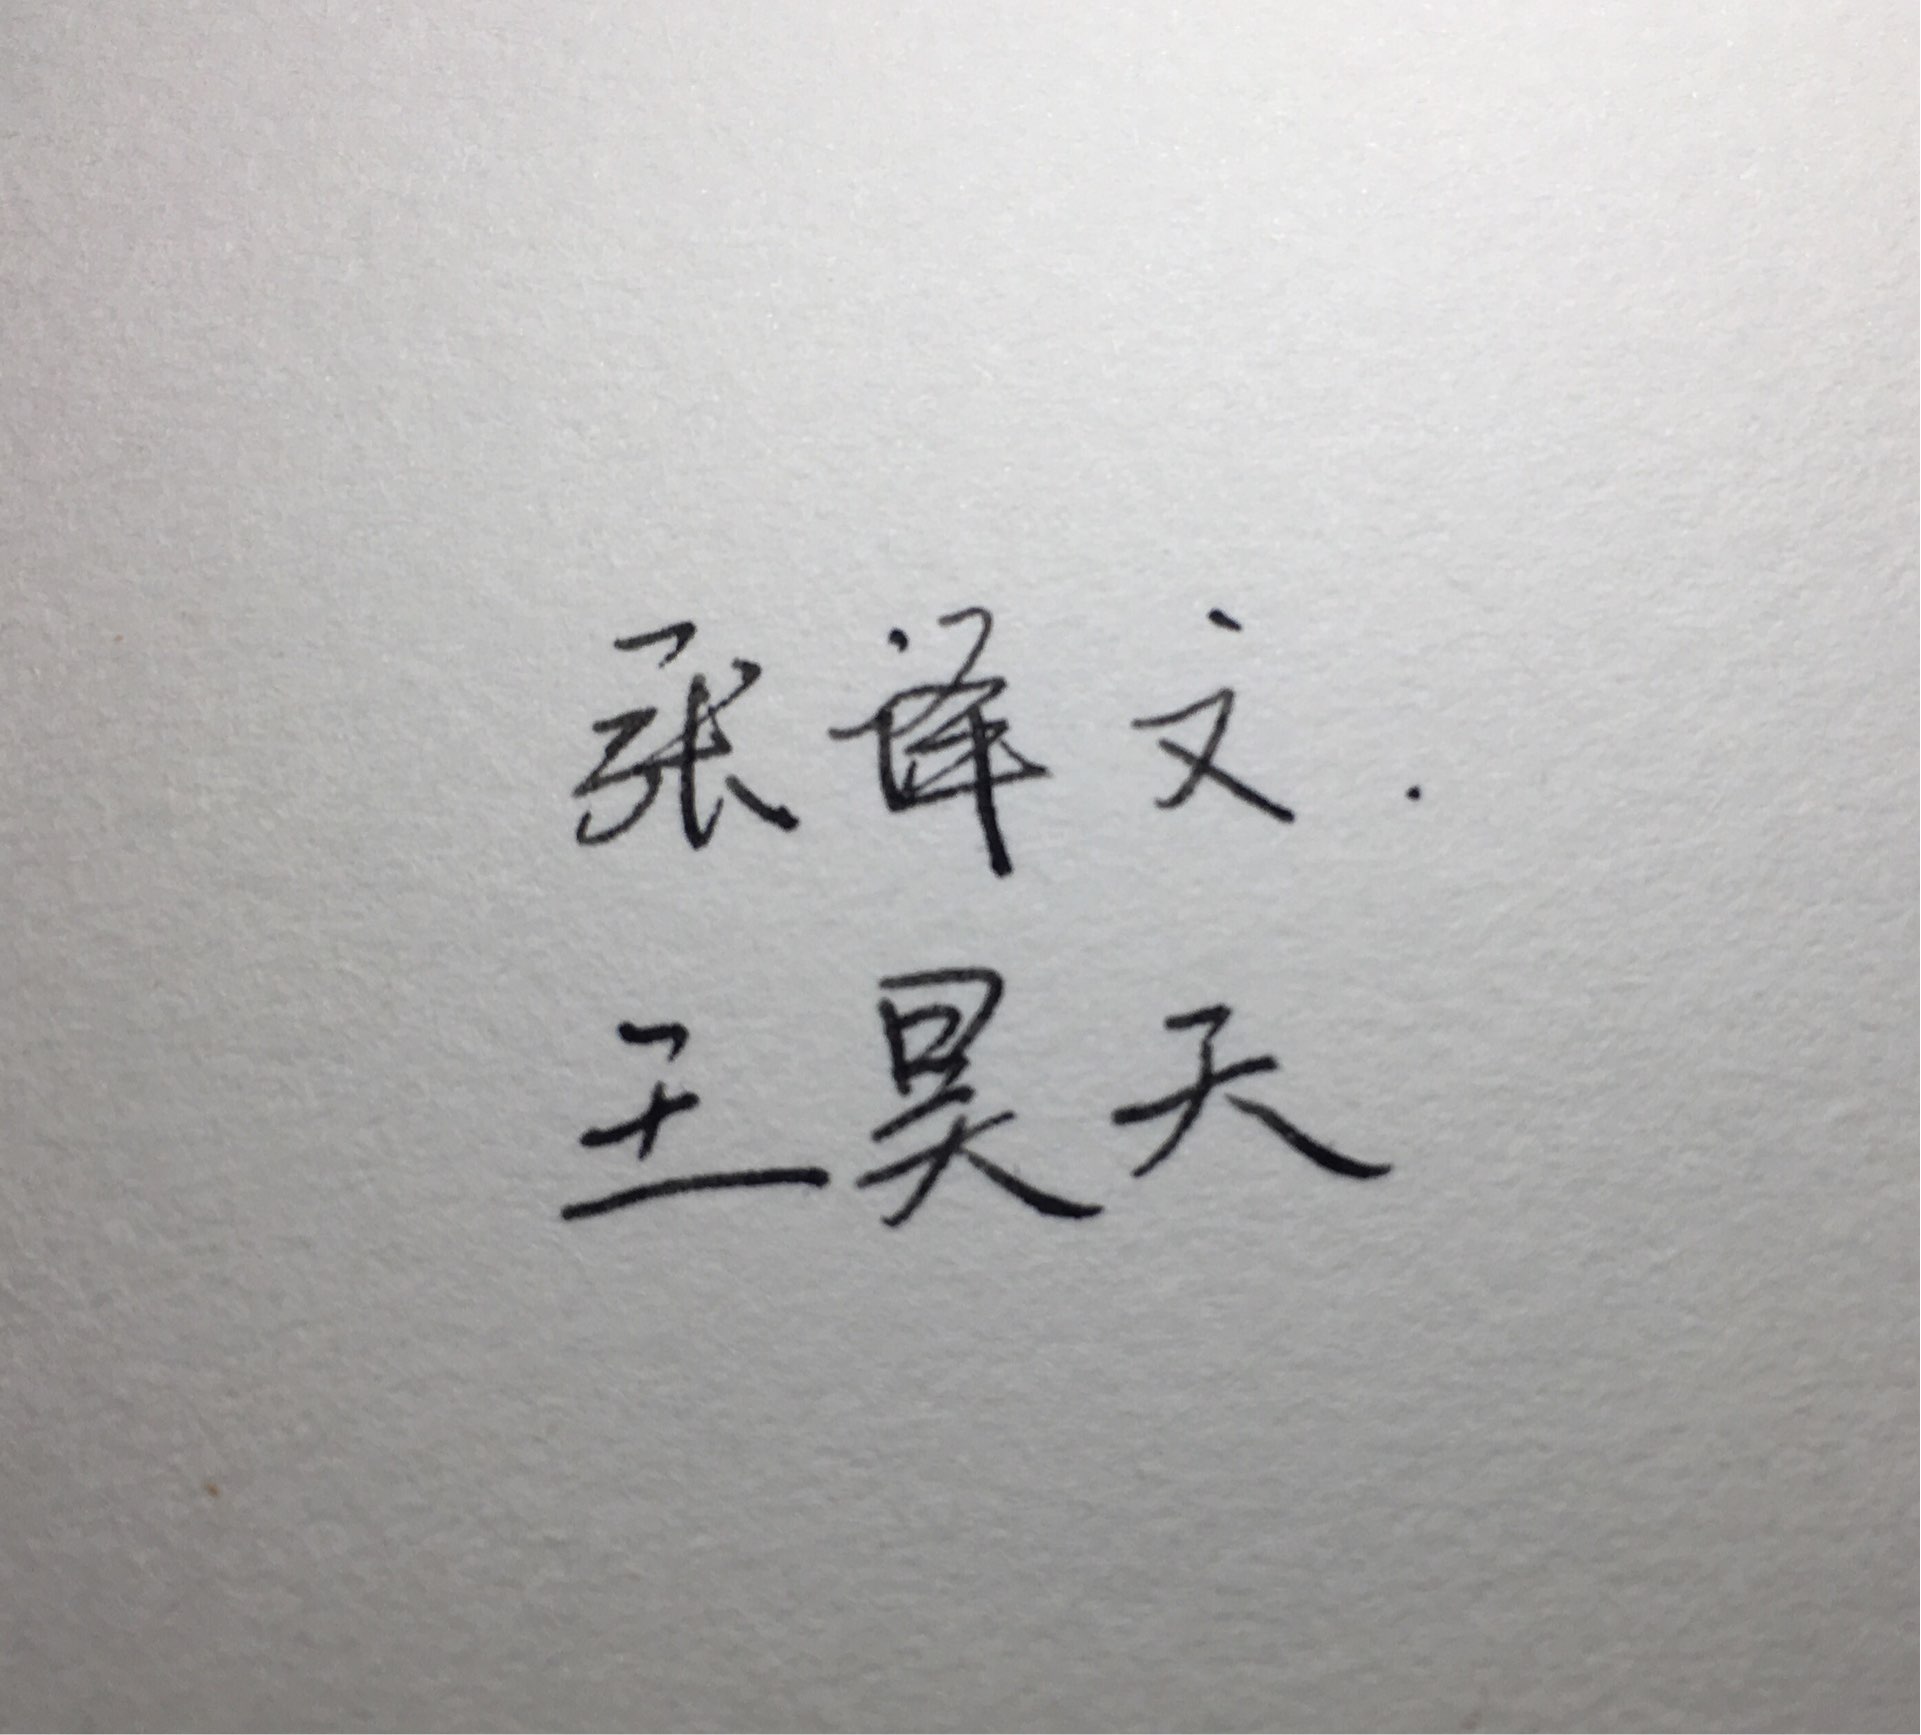 张译文.
王昊天